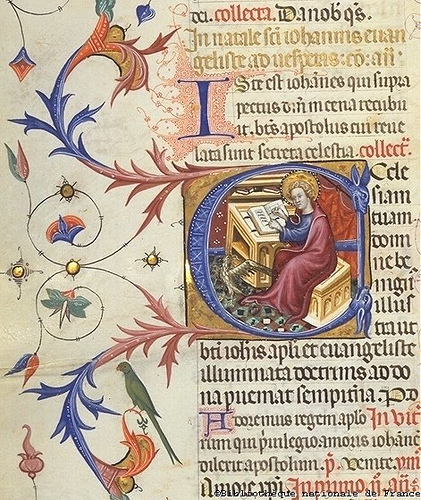 dei. collecta. Da nob̄ q̄s.
In natale sc̄i iohannis euan
geliste ad uesperas: co: añ
Iste est iohānes qui supra
pectus dn̄i in cena recubu
it. bt̄s apostolus cui reue
lata sunt secreta celestia. collect̄.
Eccle
siam
tuam
domi
ne be
nign̄
illus
tra ut
bt̄i ioh̄is apl̄i et euangeliste
illuminata doctrinis ad do
na pueniat sempit̄na. P d
Adoremus regem apl̄o In uit
rium qui p̄uilegio amoris iohanē
dilexit apostolum. p̄. Venite.
Amore xp̄i. In primo. n̄. añ
©Bibliothèque nationale de France